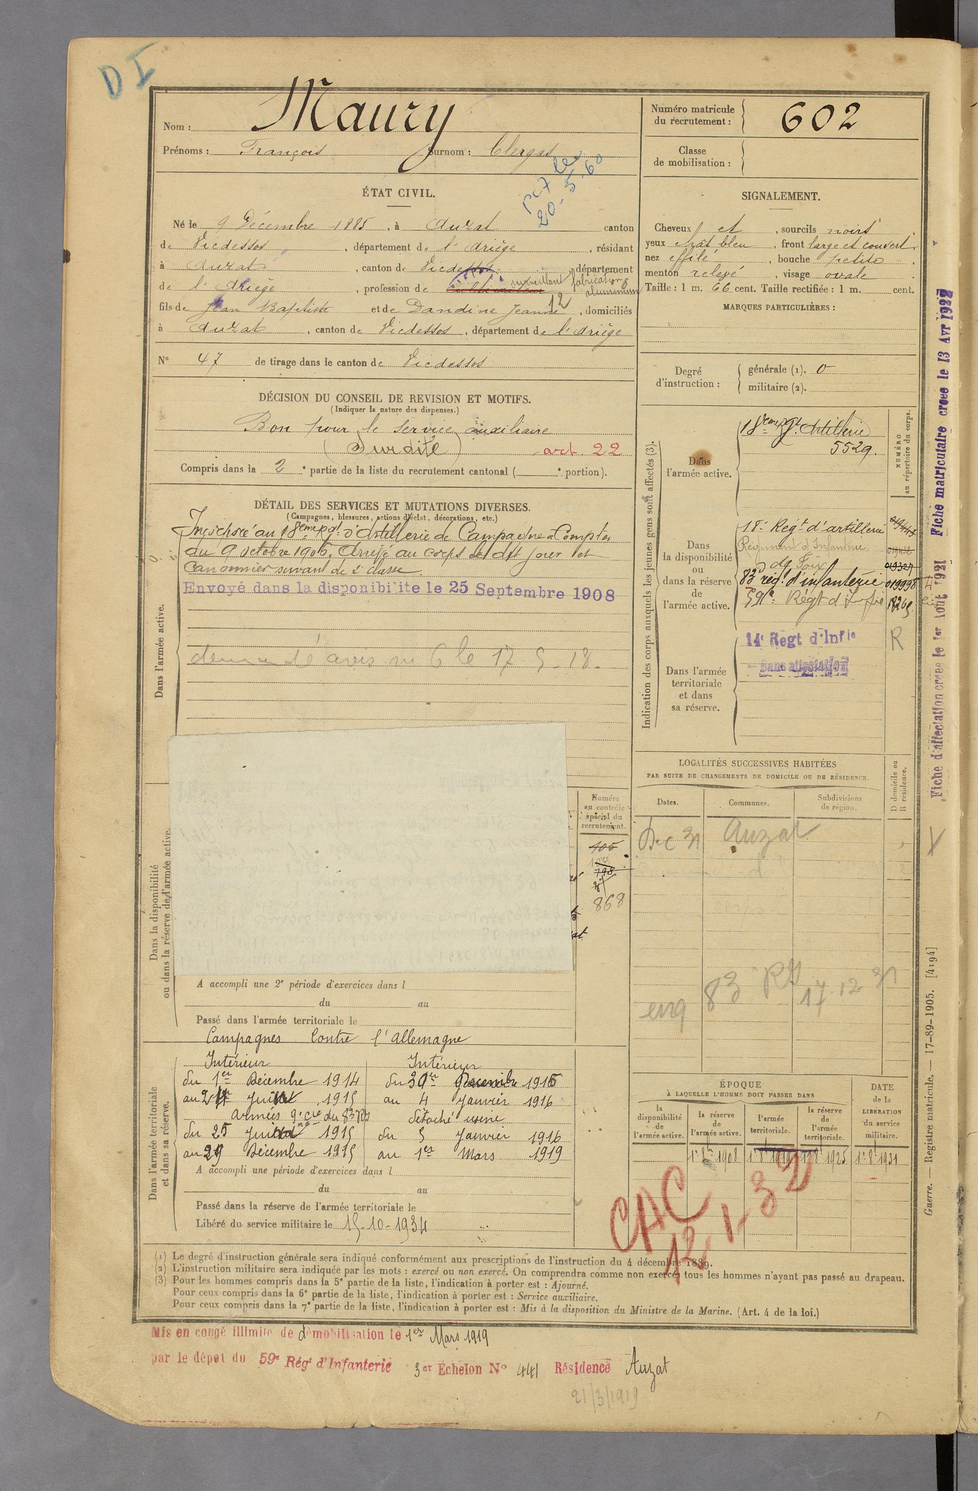 D I
Nom : Maury
Prénoms : François Surnom : Clergat
Numéro matricule du recrutement : 602
Classe de mobilisation :
ÉTAT CIVIL.
20.5.60
Né le 9 Décembre 1885, à Auzat canton
de Vicdessos, département de l'Ariège, résidant
à Auzat, canton de Vicdessos, département
de l'Ariège, profession de surveillant fabrication aluminium
12
fils de Jean Baptiste et de Dandine Jeanne, domiciliés
à Auzat, canton de Vicdessos, département de l'Ariège
N° 47 de tirage dans le canton de Vicdessos
SIGNALEMENT.
Cheveux et, sourcils noirs
yeux chat bleu, front large et couvert
nez effilé, bouche petite
menton relevé, visage ovale
Taille : 1 m. 66 cent. Taille rectifiée : 1 m. cent.
MARQUES PARTICULIÈRES :
Degré d'instruction : générale (1). 0
militaire (2).
DÉCISION DU CONSEIL DE REVISION ET MOTIFS.
(Indiquer la nature des dispenses.)
Bon pour le service auxiliaire
(Surdité) art. 22
Compris dans la 2e partie de la liste du recrutement cantonal ( e portion).
DÉTAIL DES SERVICES ET MUTATIONS DIVERSES.
(Campagnes, blessures, actions d'éclat, décorations, etc.)
Incorporé au 18ème Rgt d'Artillerie de Campagne à Compter
du 9 octobre 1906, Arrivé au corps le dit jour et
Canonnier servant de 2e classe.
Envoyé dans la disponibilité le 25 Septembre 1908
17 5-18.
Dans l'armée active.
Dans la disponibilité ou dans la réserve de l'armée active.
Dans l'armée territoriale et dans sa réserve.
Indication des corps auxquels les jeunes gens sont affectés (3).
NUMÉRO au répertoire du corps.
Dans l'armée active.
18ème Rgt Artillerie
5529.
Dans la disponibilité ou dans la réserve de l'armée active.
18e Regt d'artillerie
Régiment d'Infanterie
de Foix
83e régt d'infanterie
59e Régt d'Infie
Dans l'armée territoriale et dans sa réserve.
14e Regt d'Infie
Sans affectation
R
Fiche d'affectation créée le 1er Août 1921 Fiche matriculaire créée le 13 Avr 1922
Numéro au contrôle spécial du recrutement.
405
798
868
LOCALITÉS SUCCESSIVES HABITÉES
PAR SUITE DE CHANGEMENTS DE DOMICILE OU DE RÉSIDENCE.
Dates. Communes. Subdivisions de région. D domicile ou R résidence.
Dec 31 Auzat
83 RI 17 12 31
A accompli une 2e période d'exercices dans l
du au
Passé dans l'armée territoriale le
Campagnes Contre l'Allemagne
Intérieur Intérieur
du 1er Décembre 1914 du 30 Décembre 1915
au 24 Juillet 1915 au 4 Janvier 1916
Armées Détaché usine
du 25 Juillet 1915 du 5 Janvier 1916
au 29 Décembre 1915 au 1er Mars 1919
A accompli une période d'exercices dans l
du au
Passé dans la réserve de l'armée territoriale le
Libéré du service militaire le 15-10-1934
ÉPOQUE
À LAQUELLE L'HOMME DOIT PASSER DANS
la disponibilité de l'armée active. la réserve de l'armée active. l'armée territoriale. la réserve de l'armée territoriale.
DATE DE LA LIBÉRATION du service militaire.
CAC 12.1-32
Guerre. — Registre matricule. — 17-89-1905. [4194]
(1) Le degré d'instruction générale sera indiqué conformément aux prescriptions de l'instruction du 4 décembre 1889.
(2) L'instruction militaire sera indiquée par les mots : exercé ou non exercé. On comprendra comme non exercés tous les hommes n'ayant pas passé au drapeau.
(3) Pour les hommes compris dans la 5e partie de la liste, l'indication à porter est : Ajourné.
Pour ceux compris dans la 6e partie de la liste, l'indication à porter est : Service auxiliaire.
Pour ceux compris dans la 7e partie de la liste, l'indication à porter est : Mis à la disposition du Ministre de la Marine. (Art. 4 de la loi.)
Mis en congé illimité de démobilisation le 1er Mars 1919
par le dépôt du 59e Régt d'Infanterie 3er Échelon N° 441 Résidence Auzat
21/3/1919